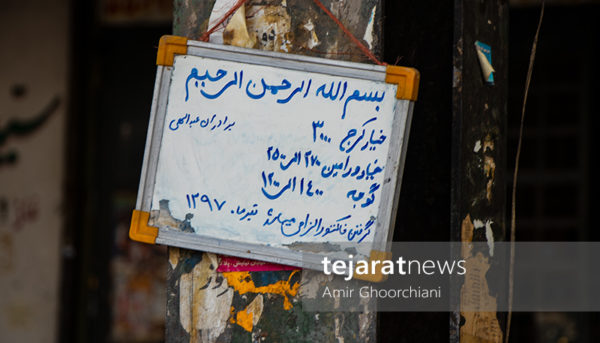 بسم الله الرحمن الرحیم
برادران عبدالعلی
خیار کرج ۳۰۰۰
خیار ورامین ۲۷۰۰ الی ۲۵۰۰
گوجه ۱۴۰۰ الی ۱۲۰۰
گرفتن فاکتور الزامی میباشد تیرماه ۱۳۹۷
tejaratnews
Amir Ghoorchiani